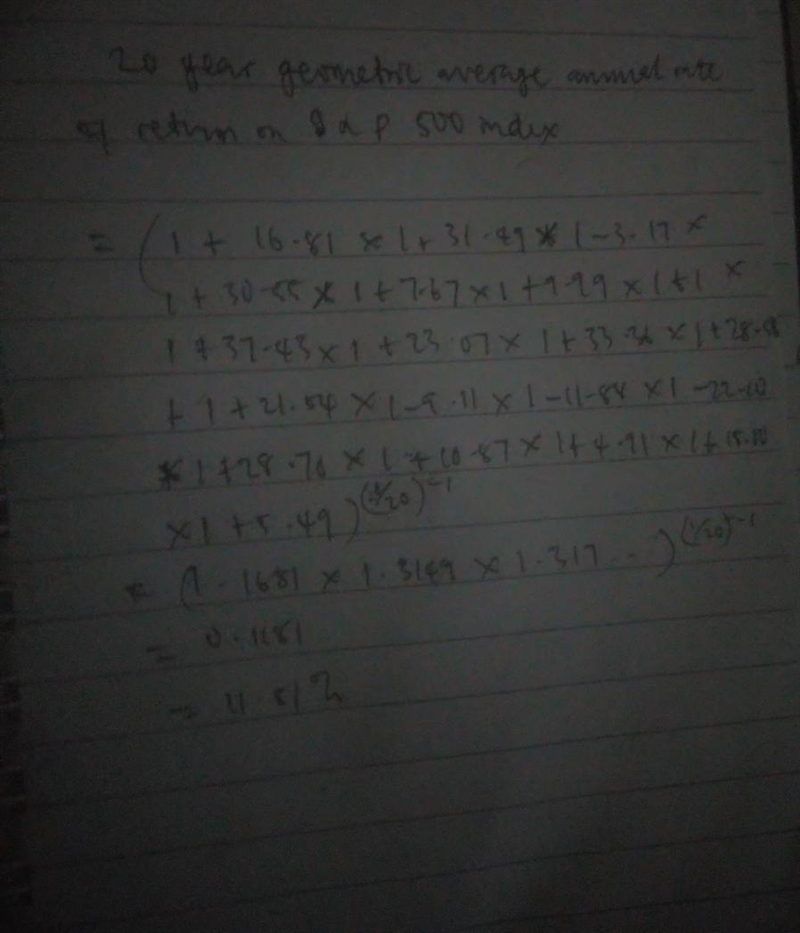 20 year geometric average annual rate
of return on S & P 500 index
= (1 + 16.81 × 1 + 31.49 × 1 - 3.17 ×
1 + 30.55 × 1 + 7.67 × 1 + 9.99 × 1 + 1 ×
1 + 37.43 × 1 + 23.07 × 1 + 33.36 × 1 + 28.58
+ 1 + 21.04 × 1 - 9.11 × 1 - 11.88 × 1 - 22.10
× 1 + 28.70 × 1 + 10.87 × 1 + 4.91 × 1 +
× 1 + 5.49)^(1/20) - 1
= (1.1681 × 1.3149 × 1.317 ...)^(1/20) - 1
= 0.1181
= 11.81%